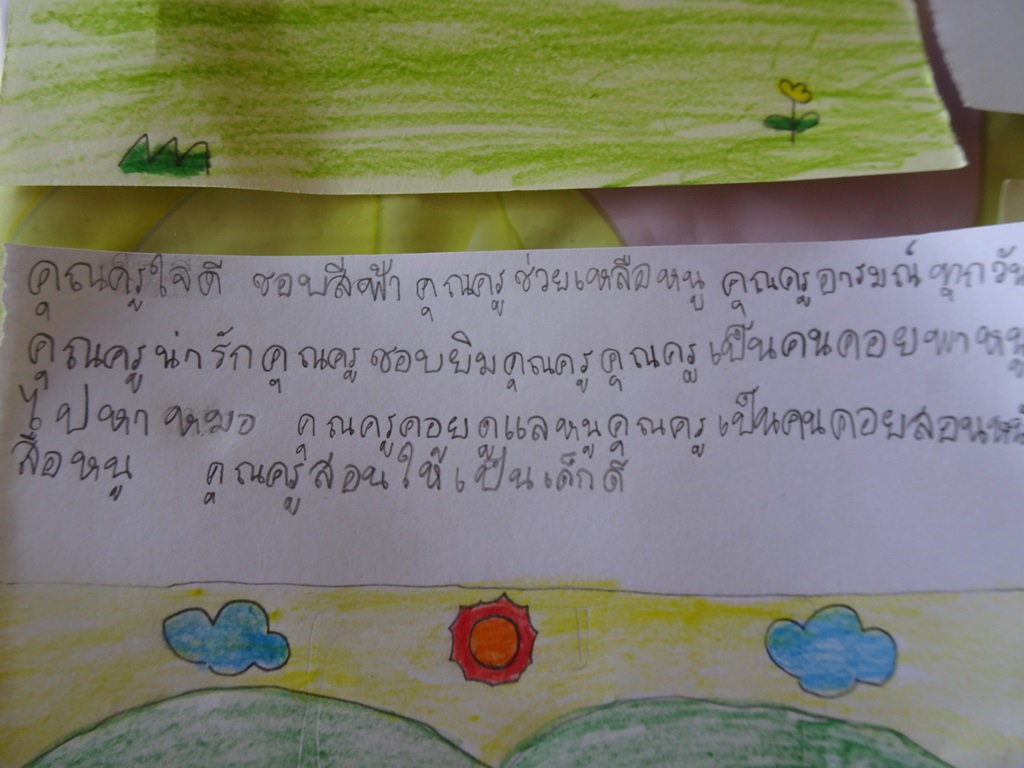 คุณครูใจดี ชอบสีฟ้า คุณครูช่วยเหลือหนู คุณครูอารมณ์ทุกวัน
คุณครูน่ารักคุณครูชอบยิ้มคุณครูคุณครูเป็นคนคอยพาหนู
ไปหาหมอ คุณครูคอยดูแลหนูคุณครูเป็นคนคอยสอนหนัง
สือหนู คุณครูสอนให้เป็นเด็กดี